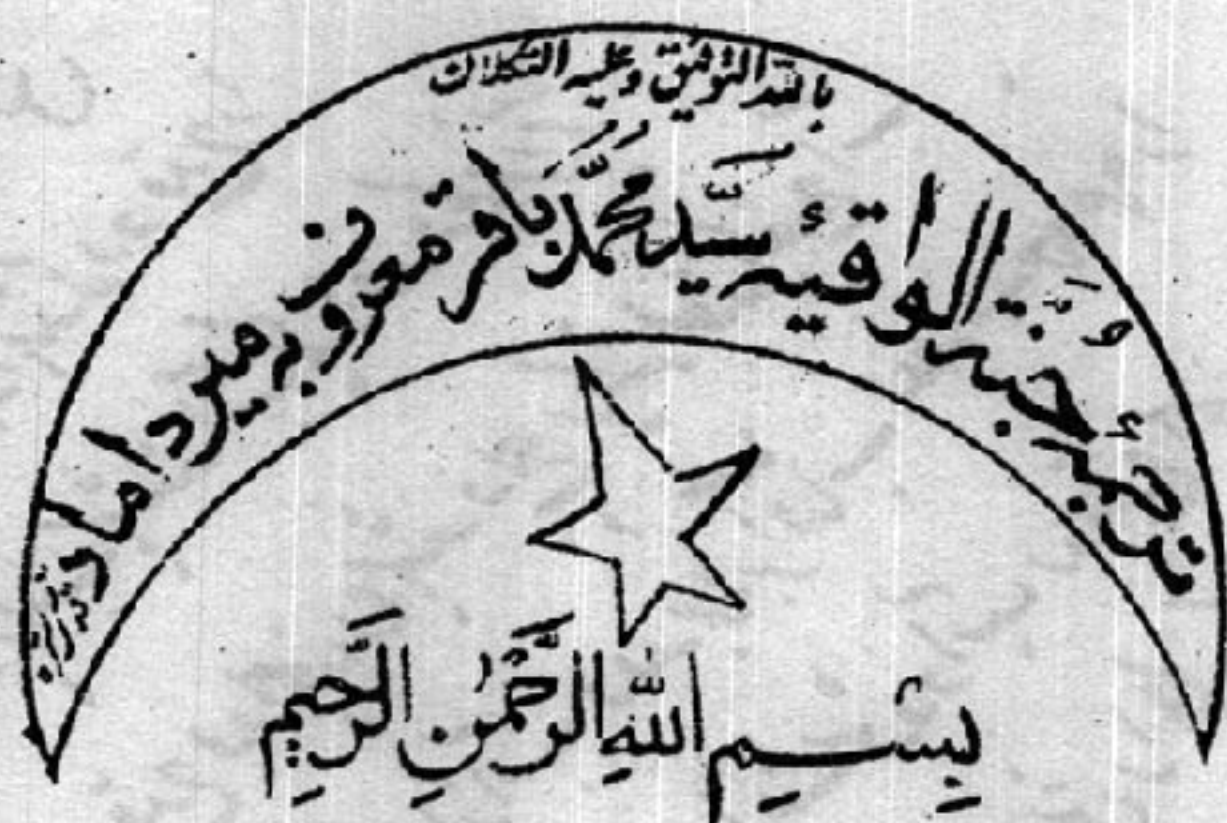 بالله التوفیق وعلیه التکلان
ترجمۀ جنة الواقیه سید محمد باقر معروف به میرداماد
بِسْمِ اللهِ الرَّحْمٰنِ الرَّحِیمِ